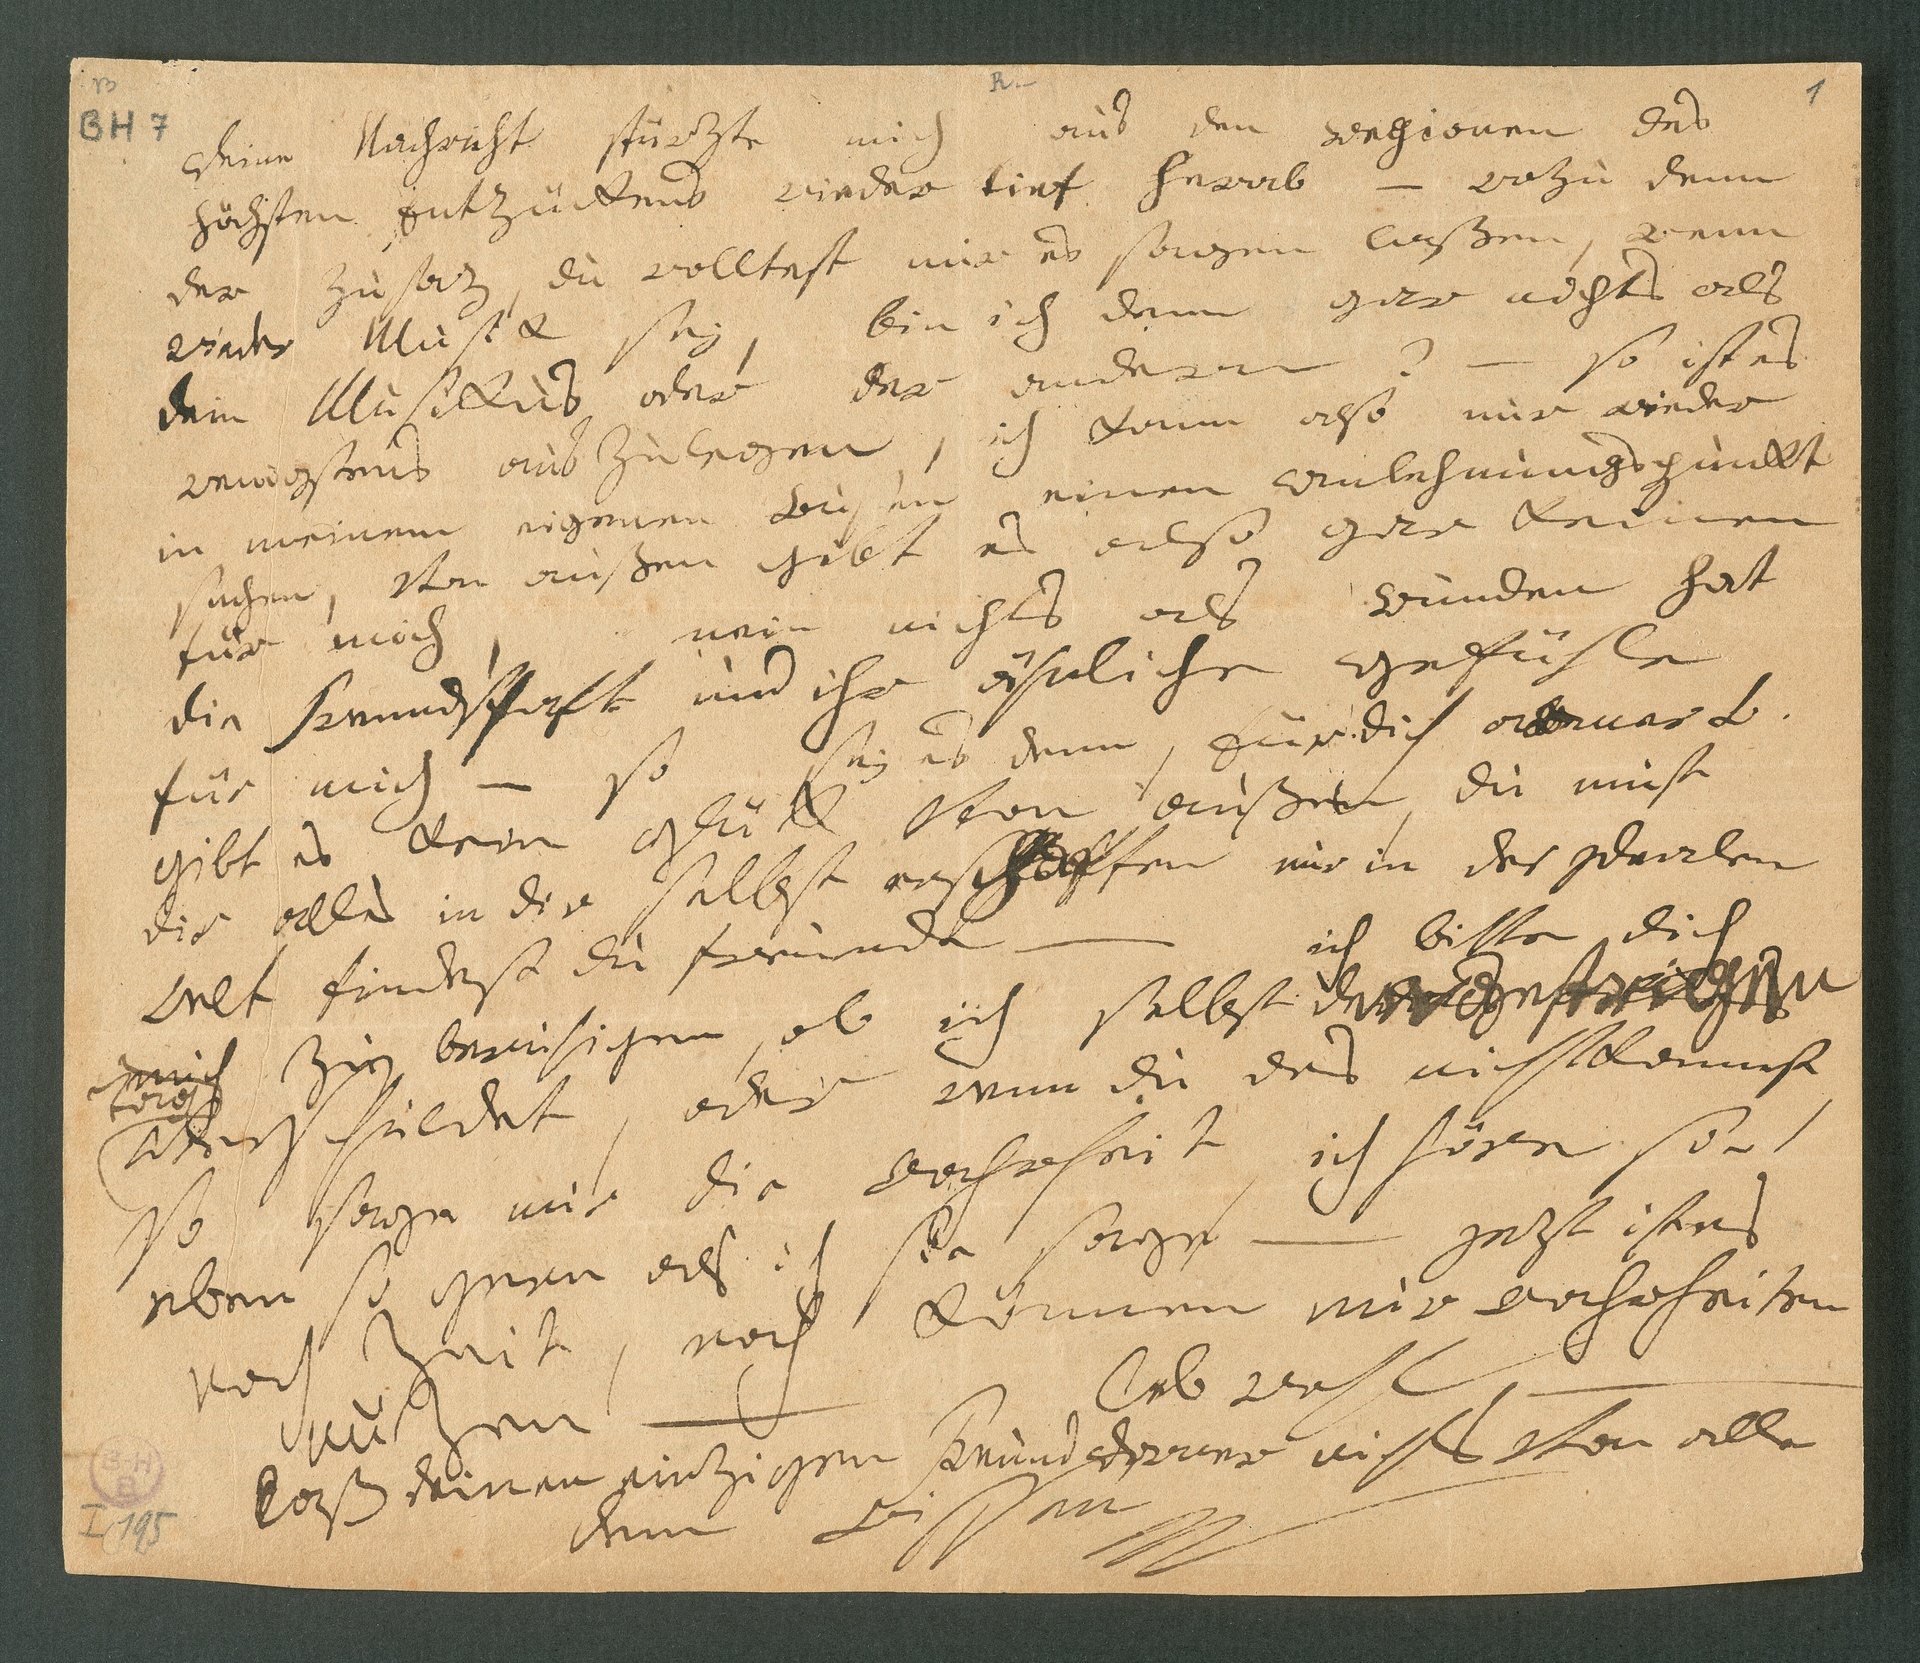 BH 7
R.
1
deine Nachricht stürzte mich aus den regionen des
höchsten Entzückens wieder tief herab – wozu denn
der Zusaz, du wolltest mir es sagen laßen, wenn
wieder Musik sey, bin ich denn gar nichts als
dein Musikus oder der andern? – so ist es
wenigstens auszulegen, ich kann also nur wieder
in meinem eigenen Busen einen anlehnungspunkt
suchen, von außen gibt es also gar keinen
für mich, nein nichts als wunden hat
die Freundschaft und ihr ähnliche gefühle
für mich – so sey es denn, für dich armer B.
gibt es kein glück von außen, du must
dir alles in dir selbst erschaffen nur in der Idealen
welt findest du freunde – ich bitte dich
mich zu beruhigen, ob ich selbst den gestrigen
tag
verschuldet, oder wenn du das nicht kannst
so sage mir die wahrheit, ich höre sie
eben so gern als ich sie sage – jezt ist es
noch Zeit, noch können mir wahrheiten
nüzen – leb wohl –
laß deinen einzigen Freund dorner nichts von alle
dem wissen
B-H
B
I 195